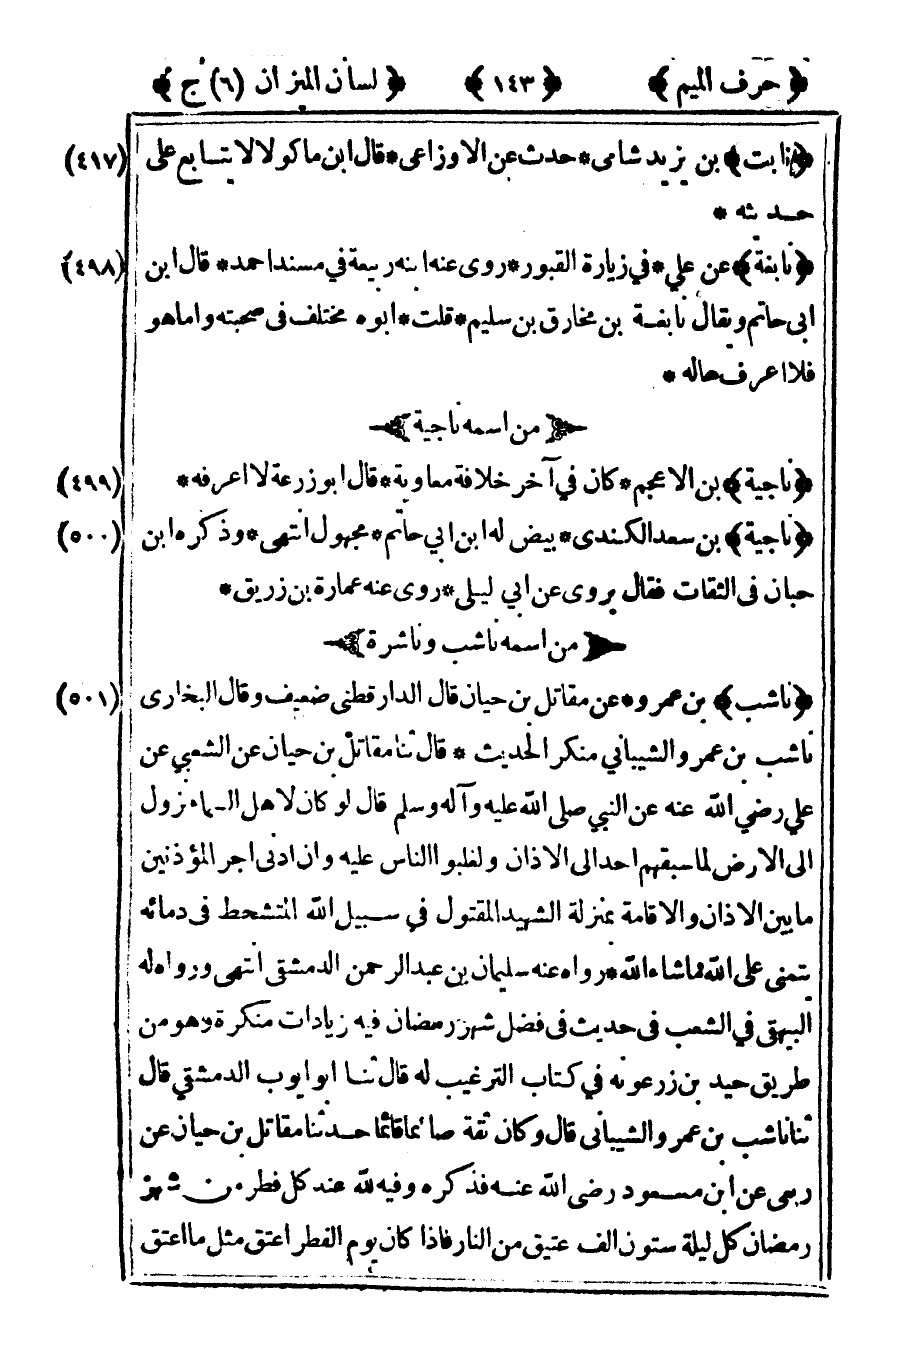 ﴿ حرف الميم ﴾ ﴿ ١٤٣ ﴾ ﴿ لسان الميزان (٦) ج ﴾
﴿ ثابت ﴾ بن يزيد شامى * حدث عن الاوزاعى * قال ابن ماكولا لا يتابع على (٤١٧)
حديثه *
﴿ نابغة ﴾ عن علي * في زيارة القبور * روى عنه ابنه ربيعة في مسند احمد * قال ابن (٤٩٨)
ابى حاتم ويقال نابغة بن مخارق بن سليم * قلت * ابوه مختلف فى صحبته واما هو
فلا اعرف حاله *
من اسمه ناجية
﴿ ناجية ﴾ بن الاعجم * كان في آخر خلافة معاوية * قال ابو زرعة لا اعرفه * (٤٩٩)
﴿ ناجية ﴾ بن سعد الكندى * بيض له ابن ابي حاتم * مجهول انتهى * وذكره ابن (٥٠٠)
حبان فى الثقات فقال يروى عن ابي ليلى * روى عنه عمارة بن زريق *
من اسمه ناشب وناشرة
﴿ ناشب ﴾ بن عمرو * عن مقاتل بن حيان قال الدارقطنى ضعيف وقال البخارى (٥٠١)
ناشب بن عمرو الشيباني منكر الحديث * قال ثنا مقاتل بن حيان عن الشعبي عن
علي رضي الله عنه عن النبي صلى الله عليه وآله وسلم قال لو كان لاهل السماء نزول
الى الارض لما سبقهم احد الى الاذان ولغلبوا الناس عليه وان ادنى اجر المؤذنين
ما بين الاذان والاقامة بمنزلة الشهيد المقتول في سبيل الله المتشحط فى دمائه
يتمنى على الله ما شاء الله * رواه عنه سليمان بن عبد الرحمن الدمشقى انتهى ورواه له
البيهقى في الشعب فى حديث فى فضل شهر رمضان فيه زيادات منكرة وهو من
طريق حميد بن زرعويه في كتاب الترغيب له قال ثنا ابو ايوب الدمشقي قال
ثنا ناشب بن عمرو الشيبانى قال وكان ثقة صائما قائما حدثنا مقاتل بن حيان عن
ربعى عن ابن مسعود رضى الله عنه فذكره وفيه لله عند كل فطر من شهر
رمضان كل ليلة ستون الف عتيق من النار فاذا كان يوم الفطر اعتق مثل ما اعتق